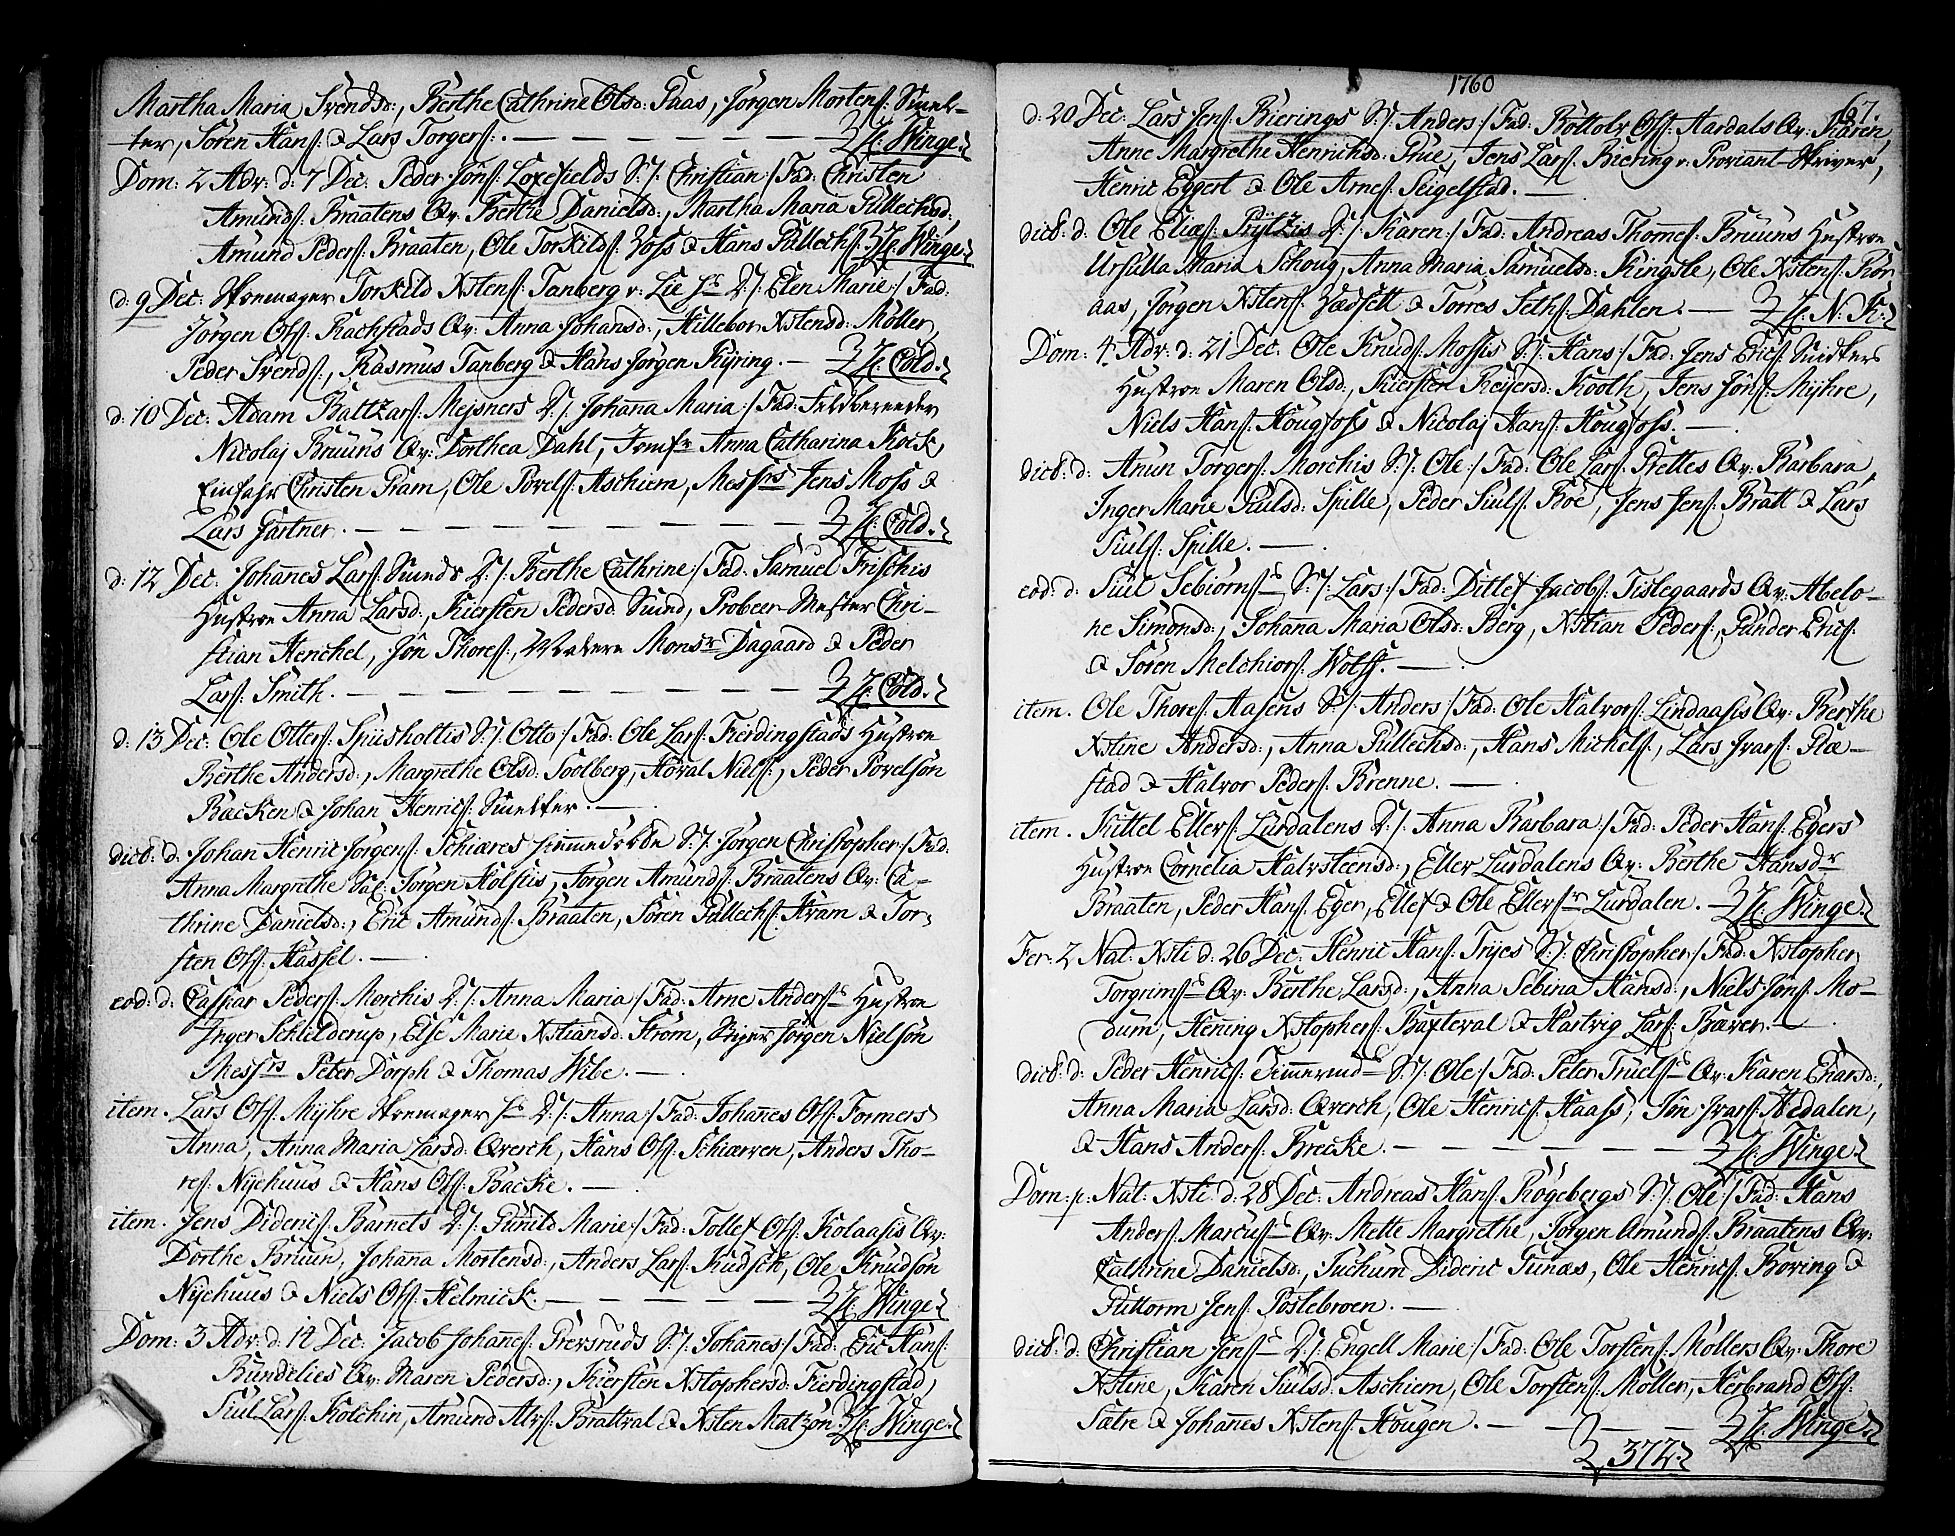 Martha Maria Svendsd:, Berthe Cathrine Olsd: Saas, Jörgen Mortenſ: Smel-
ter, Sören Hanſ: & Lars Torgerſ: . — — — — — H: Winge.
Dom: 2 Adv: d: 7 Dec: Peder Jönſ: Loxefields S:/: Christian:/ Fad: Christen
Amundſ: Braatens Qv: Berthe Danielsd:, Martha Maria Pullechsd:,
Amund Pederſ: Braaten, Ole Torkildſ: Voſs & Hans Pullechſ: H: Winge.
d: 9 Dec: Torkild Xstenſ: Tanberg v: Lie D:/: Elen Marie:/ Fad:
Jörgen Olſ: Rachstads Qv: Anna Johansd:, Hillebor Xstensd: Möller,
Peder Svendſ:, Rasmus Tanberg & Hans Jörgen Kyring. — H: Cold.
d: 10 Dec: Adam Baltzarſ: Mejsners D:/: Johanna Maria:/ Fad: Feldbereeder
Nicolaj Bruuns Qv: Dorthea Dahl, Jomfr Anna Catharina Kock,
Einfahr Christen Pram, Ole Povelſ: Aschiem, Meſsrs Jens Moſs &
Lars Gartner. — — — — — — — — — H: Cold.
d: 12 Dec: Johannes Larſ: Smeds D:/: Berthe Cathrine:/ Fad: Samuel Frischis
Hustroe Anna Larsd:, Kiersten Pedersd: Smed, Probeer Mester Chri-
stian Henckel, Jön Thoreſ:, Monsr Dagaard & Peder
Larſ: Smith. — — — — — — — — — H: Cold.
d: 13 Dec: Ole Otterſ: Spusholtis S:/: Otto:/ Fad: Ole Larſ: Fierdingstads Hustroe
Berthe Andersd:, Margrethe Olsd: Soolberg, Hoval Nielſ:, Peder Povelsön
Backen & Johan Henricſ: Smelter. —
dict: d: Johan Henric Jörgenſ: Schiæres S:/: Jörgen Christopher:/ Fad:
Anna Margrethe Sal: Jörgen Holstis, Jörgen Amundſ: Braatens Qv: Ca-
thrine Danielsd:, Eric Amundſ: Braaten, Sören Pullechſ: Hvam & Tor-
sten Olſ: Haſsel. —
eod: d: Caspar Pederſ: Morchis D:/: Anna Maria:/ Fad: Arne Anderſ: Hustroe
Inger Schielderup, Else Marie Xstiansd: Ström, Jörgen Nielsön
Meſsrs Peter Dorph & Thomas Wibe. —
item. Lars Olſ: Myhre D:/: Anna:/ Fad: Johannes Olſ: Formers
Anna, Anna Maria Larsd: Qverch, Hans Olſ: Schiærven, Anders Tho-
reſ: Nyehuus & Hans Olſ: Backe. —
item. Jens Didericſ: Barnets D:/: Gunild Marie:/ Fad: Tollef Olſ: Kolaasis Qv:
Dorthe Bruun, Johanna Mortensd:, Anders Larſ: Kudsck, Ole Knudsön
Nyehuus & Niels Olſ: Helmick. — — — — — H: Winge.
Dom: 3 Adv: d: 14 Dec: Jacob Johanneſ: Prersruds S:/: Johannes:/ Fad: Eric Hanſ:
Bundelies Qv: Maren Pedersd:, Kiersten Xstophersd: Fierdingstad,
Siul Larſ: Kolchin, Amund Alvſ: Brattval & Xsten Matzön H: Winge.
1760
67.
d: 20 Dec: Lars Jenſ: Bierings S:/: Anders:/ Fad: Böttolv Olſ: Aardals Qv: Karen
Anne Margrethe Henrichsd: Prie, Jens Larſ: Biering v: Proviant-Skriver,
Henric Eggert & Ole Arneſ: Seigelstad. —
dict: d: Ole Eliæſ: Prytzis D:/: Karen:/ Fad: Andreas Thomeſ: Bruuns Hustroe
Ursulla Maria Schoug, Anna Maria Samuelsd: Ringsle, Ole Xstenſ: Rör
aas, Jörgen Xstenſ: Vædsett & Torres Sethſ: Dahlen. — H: N. K.
Dom: 4 Adv: d: 21 Dec: Ole Knudſ: Moſsis S:/: Hans:/ Fad: Jens Ericſ: Snidkers
Hustroe Maren Olsd:, Kiersten Reyersd: Kooth, Jens Jönſ: Myhre,
Niels Hanſ: Hougfoſs & Nicolaj Hanſ: Hougfoſs. —
dict: d: Anun Torgerſ: Morchis S:/: Ole:/ Fad: Ole Larſ: Prettes Qv: Barbara,
Inger Marie Siulsd: Spille, Peder Siulſ: Boe, Jens Jenſ: Bratt & Lars
Siulſ: Spille. —
eod: d: Siul Sebiörnſ: S:/: Lars:/ Fad: Ditlef Jacobſ: Tislegaards Qv: Abelo-
ne Simonsd:, Johanna Maria Olsd: Berg, Xstian Pederſ:, Gunder Ericſ:
& Sören Melchiorſ: Wolff. —
item. Ole Thoreſ: Aasens S:/: Anders:/ Fad: Ole Halvorſ: Lindaasis Qv: Berthe
Xstine Andersd:, Anna Pullechsd:, Hans Michelſ:, Lars Ivarſ: Plæ-
stad & Halvor Pederſ: Brenne. —
item. Kittel Ellefſ: Lurdalens D:/: Anna Barbara:/ Fad: Peder Hanſ: Egers
Hustroe Cornelia Halvsteensd:, Ellef Lurdalens Qv: Berthe Hansdr
Braaten, Peder Hanſ: Eger, Ellef & Ole Ellefſ: Lurdalen. — H: Winge.
Fer: 2 Nat: Xsti d: 26 Dec: Henric Hanſ: Tryes S:/: Christopher:/ Fad: Xstopher
Torgrimſ: Qv: Berthe Larsd:, Anna Sebina Hansd:, Niels Jönſ: Mo-
dum, Hening Xstopherſ: Baxteval & Hartvig Larſ: Bæver. —
dict: d: Peder Henricſ: S:/: Ole:/ Fad: Peter Truelſ: Qv: Karen Enarsd:,
Anna Maria Larsd: Qverch, Ole Henricſ: Haaſs, Jön Ivarſ: Hedalen,
& Hans Anderſ: Brecke. — — — — — H: Winge.
Dom: p: Nat: Xsti d: 28 Dec: Andreas Hanſ: Rögebergs S:/: Ole:/ Fad: Hans
Anderſ: Marcusſ: Qv: Mette Margrethe, Jörgen Amundſ: Braatens Qv:
Cathrine Danielsd:, Juchum Dideric Tunæs, Ole Henricſ: Boring &
Guttorm Jenſ: Postebroen. —
dict: d: Christian Jenſ: D:/: Engell Marie:/ Fad: Ole Torstenſ: Möllers Qv: Thore
Xstine, Karen Siulsd: Aschiem, Ole Torstenſ: Möller, Herbrand Olſ:
Satre & Johannes Xstenſ: Hougen. — — — H: Winge.
372